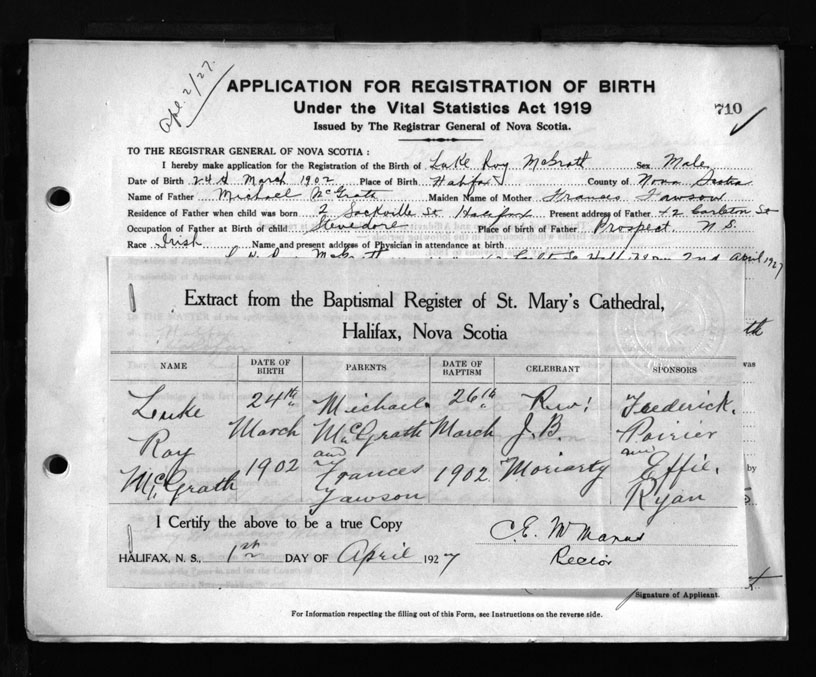 Apl. 2/27.
APPLICATION FOR REGISTRATION OF BIRTH
Under the Vital Statistics Act 1919
710
Issued by The Registrar General of Nova Scotia.
TO THE REGISTRAR GENERAL OF NOVA SCOTIA :
I hereby make application for the Registration of the Birth of Luke Roy McGrath Sex Male
Date of Birth 24th March 1902 Place of Birth Halifax County of Nova Scotia
Name of Father Michael McGrath Maiden Name of Mother Frances Yawson
Residence of Father when child was born 2 Sackville St Halifax Present address of Father 42 Carleton St
Occupation of Father at Birth of child Stevedore Place of birth of Father Prospect N. S.
Race Irish Name and present address of Physician in attendance at birth
2nd April 1927
Extract from the Baptismal Register of St. Mary's Cathedral,
Halifax, Nova Scotia
th
was
by
NAME DATE OF BIRTH PARENTS DATE OF BAPTISM CELEBRANT SPONSORS
Luke 24th Michael 26th Rev: Frederick
Roy March McGrath March J. B. Poirier
and and
McGrath 1902 Frances 1902 Moriarty Effie
Yawson Ryan
I Certify the above to be a true Copy
C. E. McManus
Rector
HALIFAX, N. S., 1st DAY OF April 1927
Signature of Applicant.
For Information respecting the filling out of this Form, see Instructions on the reverse side.